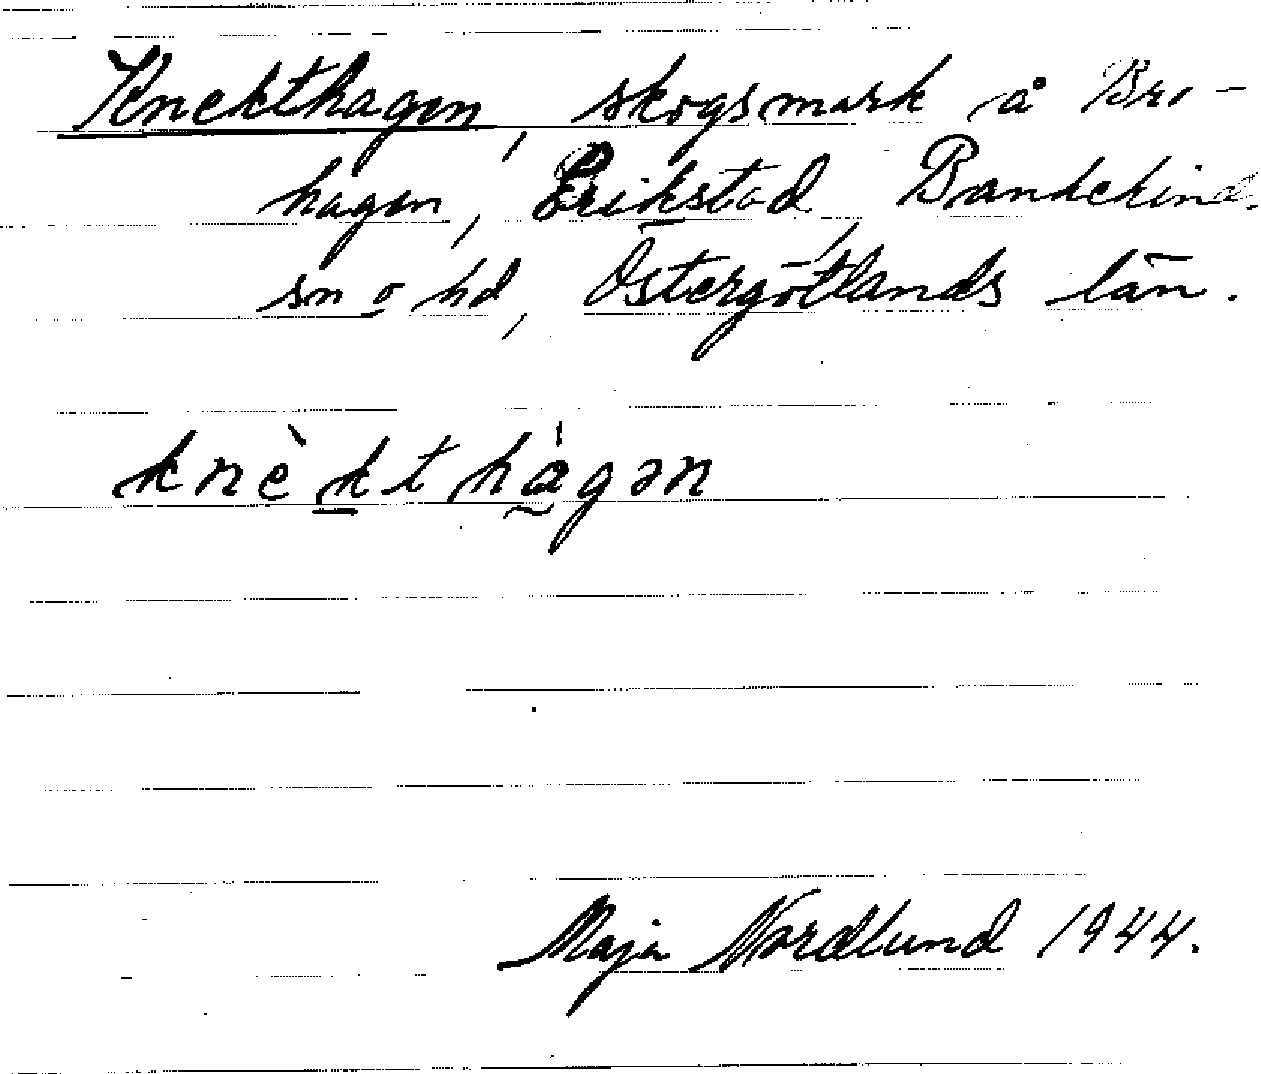 Knekthagen, skogsmark å Bro-
hagen, Erikstad, Bankekind.
sn o hd, Östergötlands län.
knèkthàgən
Maja Nordlund 1944.